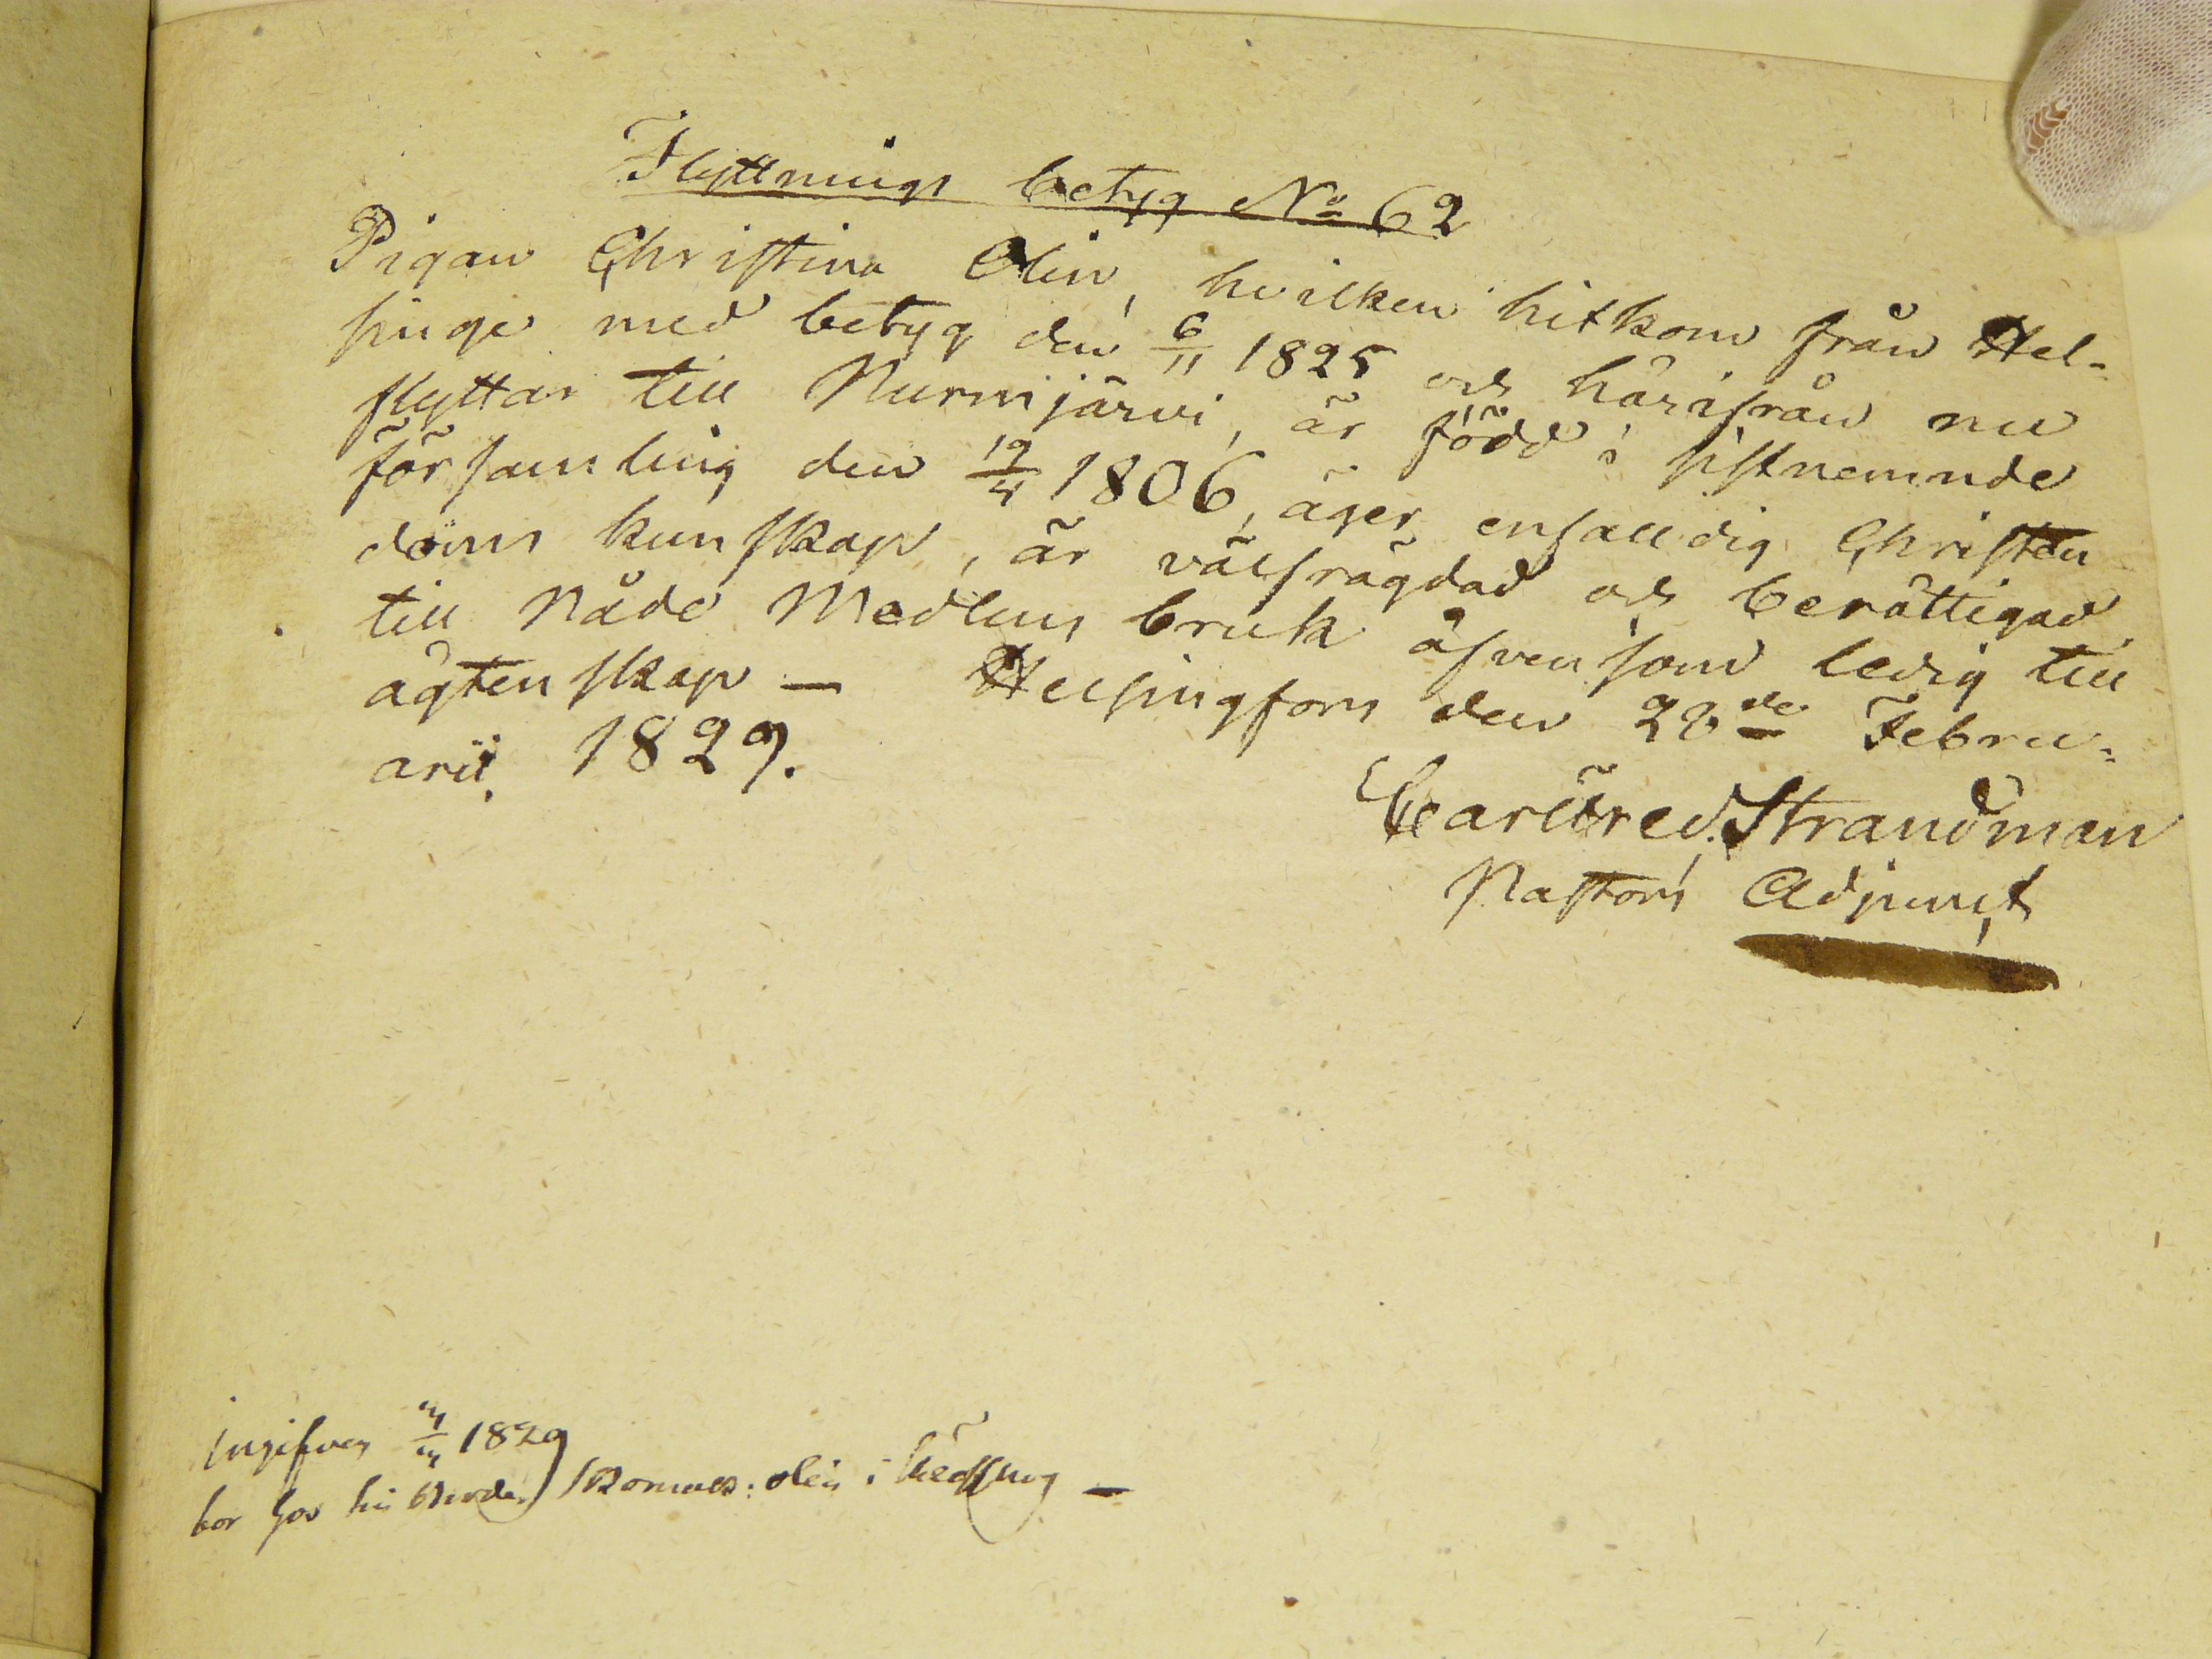 Flyttnings betyg No 62
Pigan Christina Olin, hvilken hitkom från Hel-
singe med betyg den 6/11 1825 och härifrån nu
flyttar till Nurmijärvi, är född i sistnemnde
församling den 19/4 1806, äger enfalldig Christen
doms kunskap, är välfrägdad och berättigad
till Nåde Medlens bruk äfvensom ledig till
ägtenskap — Helsingfors den 28de Febru-
arii 1829.
Carl Fred. Strandman
Pastors Adjunct
Ingifven 1829
bor hos sin broder olin i